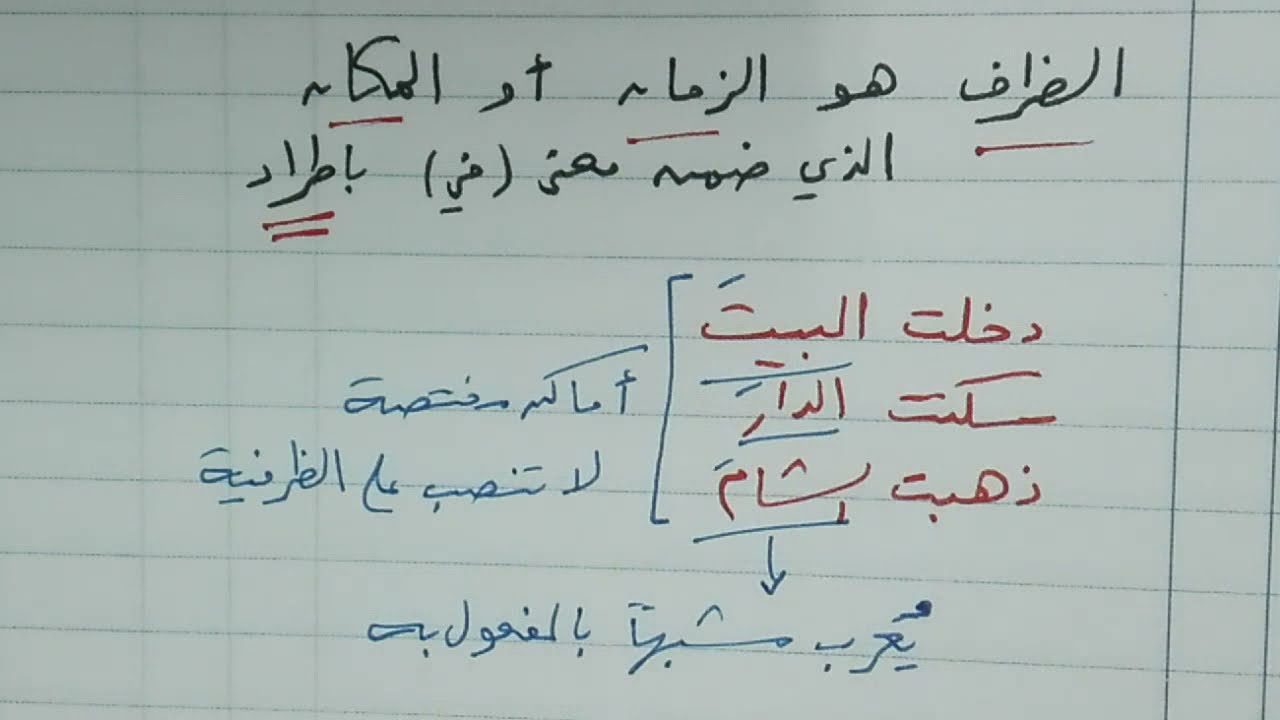 الظرف هو الزمان أو المكان
الذي ضمن معنى (في) باطراد
دخلت البيتَ
سكنت الدارَ
ذهبت الشامَ
أماكن مختصة
لا تنصب على الظرفية
يُعرب مشبهاً بالمفعول به